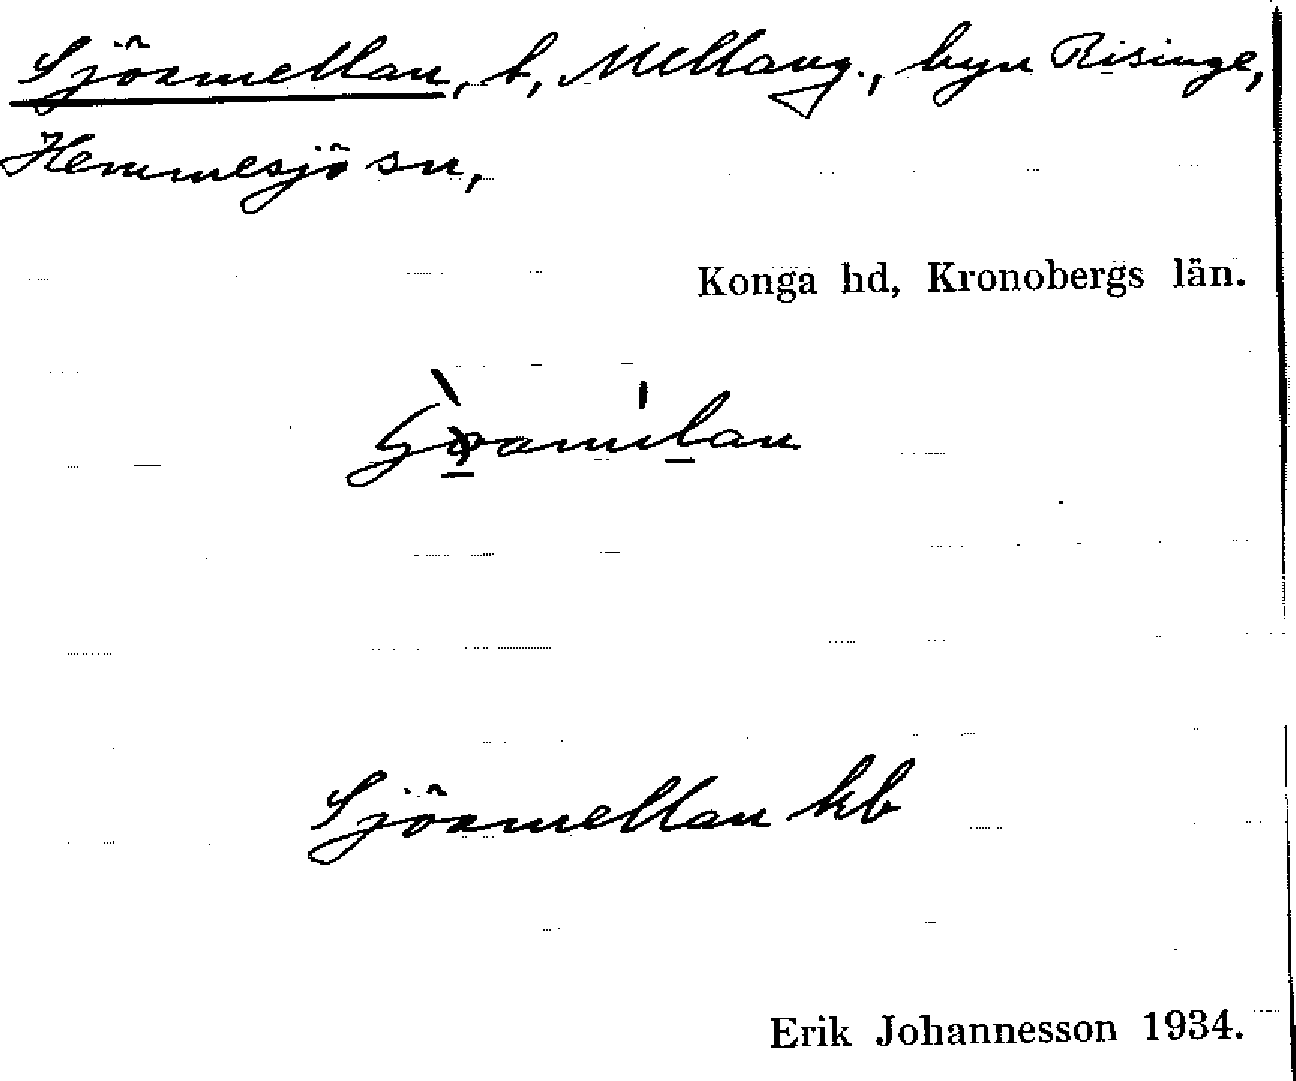 Sjöamellan, t, Mellang., byn Risinge,
Hemmesjö sn,
Konga hd, Kronobergs län.
Sjöamellan kb
Erik Johannesson 1934.